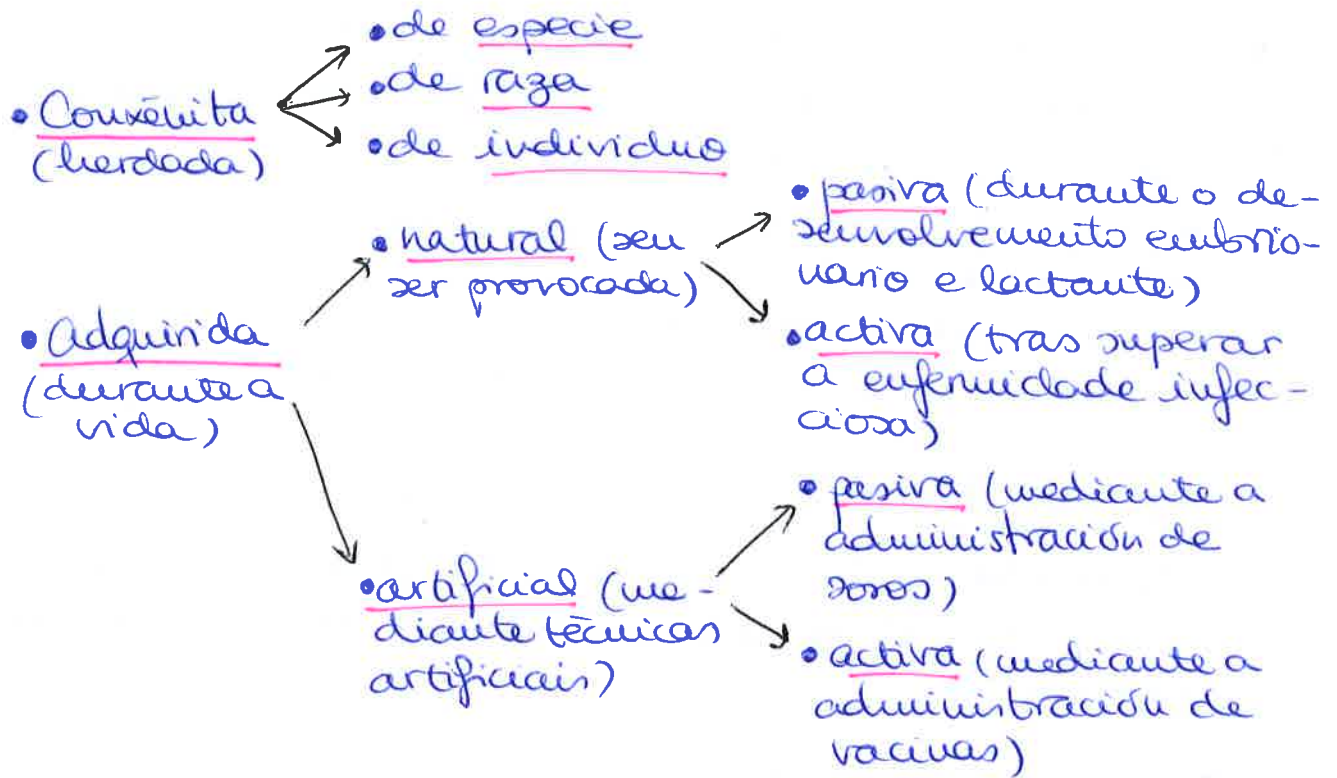 • Conxénita
(herdada)
• de especie
• de raza
• de individuo
• Adquirida
(durante a
vida)
• natural (sen
ser provocada)
• pasiva (durante o de-
senvolvemento embrio-
nario e lactante)
• activa (tras superar
a enfermidade infec-
ciosa)
• artificial (me-
diante técnicas
artificiais)
• pasiva (mediante a
administración de
soros)
• activa (mediante a
administración de
vacinas)